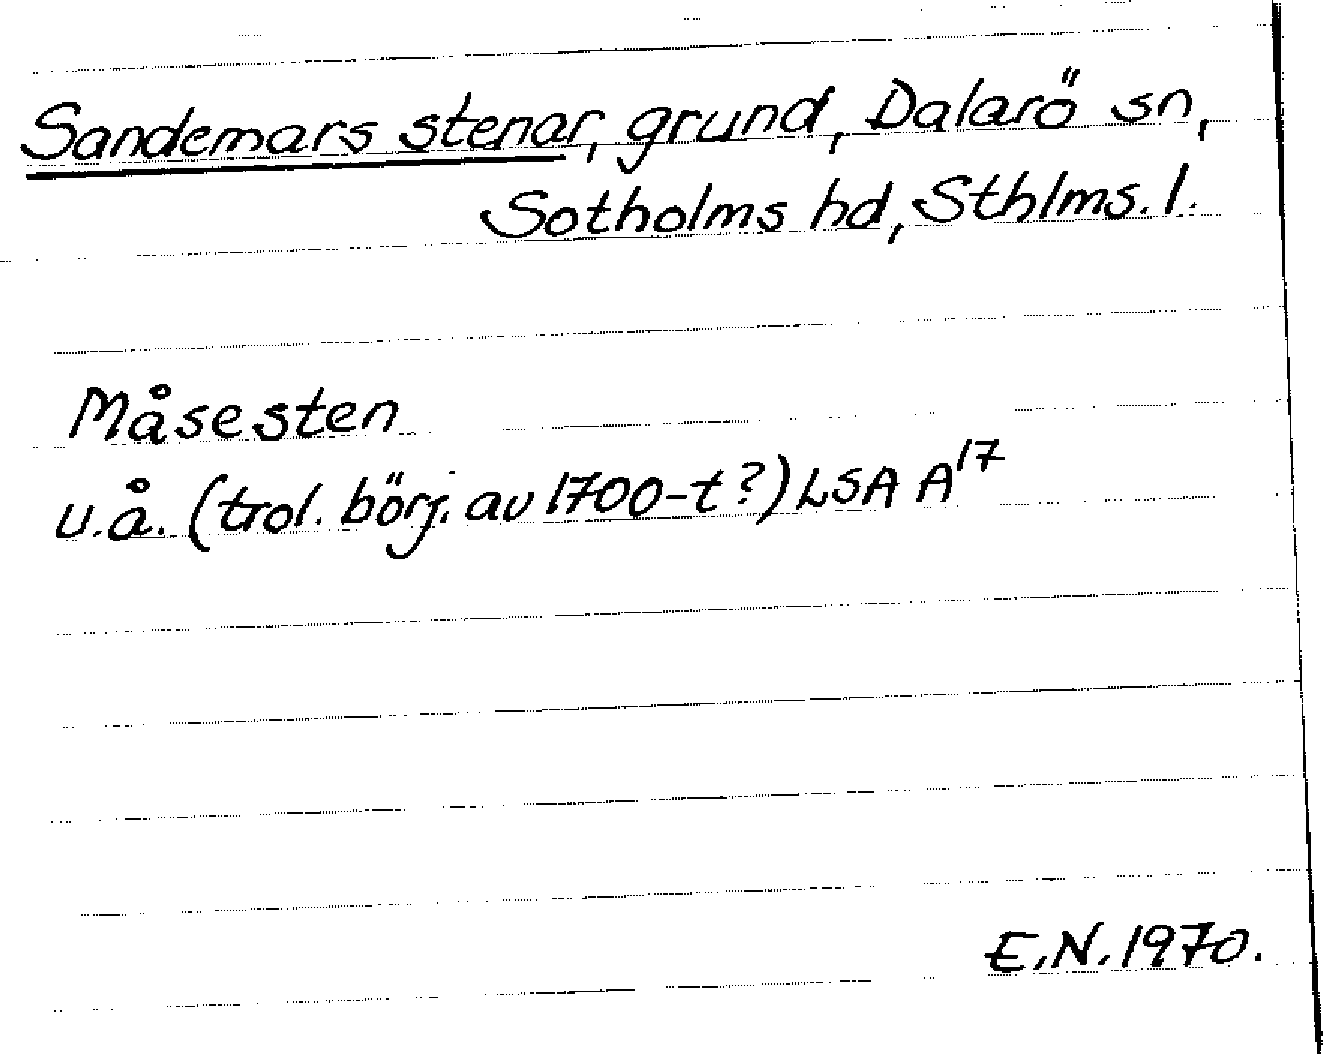 Sandemars stenar, grund, Dalarö sn,
Sotholms hd, Sthlms. l.
Måsesten
u.å. (trol. börj. av 1700-t?) LSA A¹⁷
E.N. 1970.